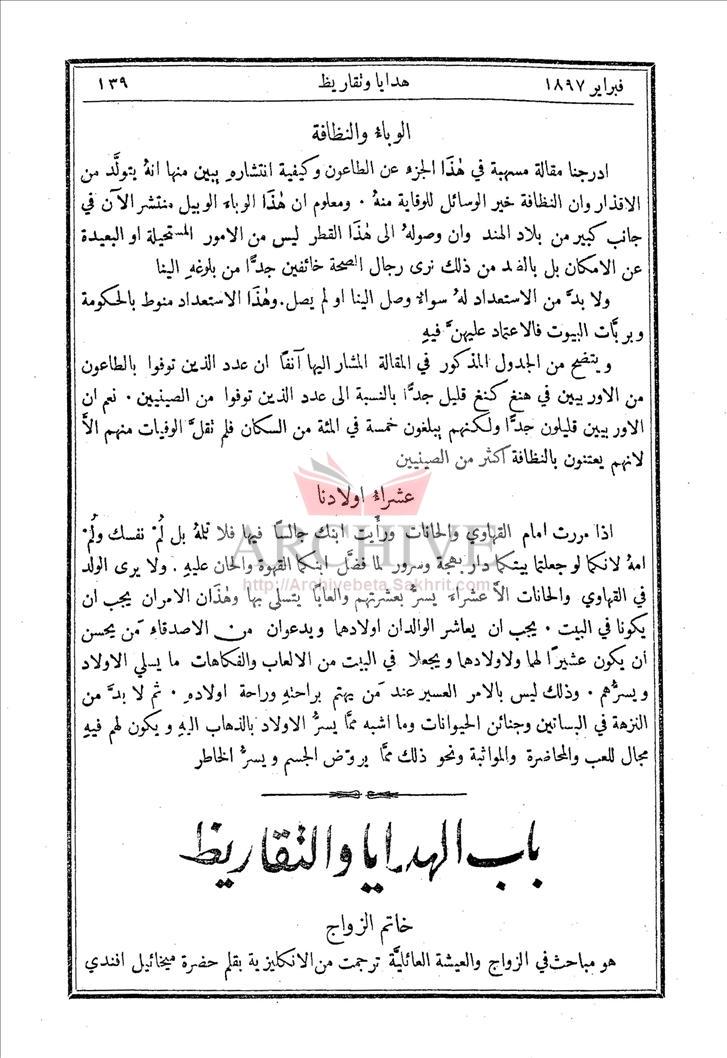 فبراير ١٨٩٧ هدايا وتقاريظ ١٣٩
الوباء والنظافة
ادرجنا مقالة مسهبة في هٰذَا الجزء عن الطاعون وكيفية انتشارهِ يبين منها انهُ يتولَّد من
الاقذار وان النظافة خير الوسائل للوقاية منهُ ٠ ومعلوم ان هٰذَا الوباء الوبيل منتشر الآن في
جانب كبير من بلاد الهند وان وصولهُ الى هٰذَا القطر ليس من الامور المستحيلة او البعيدة
عن الامكان بل بالضد من ذلك نرى رجال الصحة خائفين جدًّا من بلوغهِ الينا
ولا بدَّ من الاستعداد لهُ سواءٌ وصل الينا او لم يصل. وهٰذَا الاستعداد منوط بالحكومة
وبربَّات البيوت فالاعتماد عليهنَّ فيهِ
ويتضح من الجدول المذكور في المقالة المشار اليها آنفًا ان عدد الذين توفوا بالطاعون
من الاوربيين في هنغ كنغ قليل جدًّا بالنسبة الى عدد الذين توفوا من الصينيين ٠ نعم ان
الاوربيين قليلون جدًّا ولكنهم يبلغون خمسة في المئة من السكان فلم تقلَّ الوفيات منهم الاَّ
لانهم يعتنون بالنظافة اكثر من الصينيين
عشراءُ اولادنا
اذا مررت امام القهاوي والحانات ورأَيت ابنك جالسًا فيها فلا تلمهُ بل لُمْ نفسك ولُمْ
امهُ لانكما لو جعلتما بيتكما دار بهجة وسرور لما فضَّل ابنكما القهوة والحان عليهِ ٠ ولا يرى الولد
في القهاوي والحانات الاَّ عشراءَ يسرُّ بعشرتهم والعابًا يتسلى بها وهٰذَان الامران يجب ان
يكونا في البيت ٠ يجب ان يعاشر الوالدان اولادهما ويدعوان من الاصدقاء مَن يحسن
ان يكون عشيرًا لهما ولاولادهما ويجعلا في البيت من الالعاب والفكاهات ما يسلي الاولاد
ويسرُّهم ٠ وذلك ليس بالامر العسير عند مَن يهتم براحتهِ وراحة اولادهِ ٠ ثم لا بدَّ من
النزهة في البساتين وجنائن الحيوانات وما اشبه ممَّا يسرُّ الاولاد بالذهاب اليهِ ويكون لهم فيهِ
مجال للعب والمحاضرة والمواثبة ونحو ذلك ممَّا يروّض الجسم ويسرُّ الخاطر
باب الهدايا والتقاريظ
خاتم الزواج
هو مباحث في الزواج والعيشة العائليَّة ترجمت من الانكليزية بقلم حضرة ميخائيل افندي
ARCHIVE
http://Archivebeta.Sakhrit.com